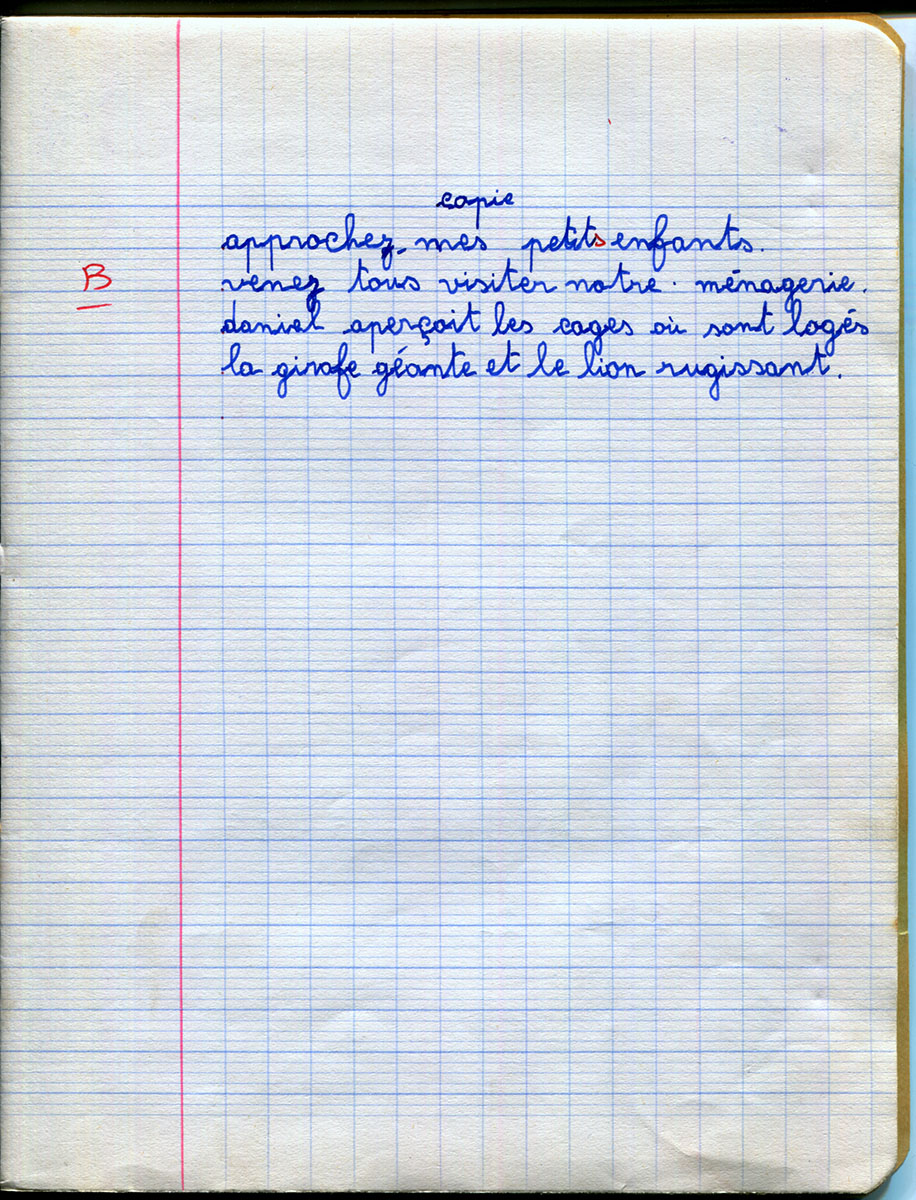 copie
approchez-mes petits enfants.
B
venez tous visiter notre. ménagerie.
daniel aperçoit les cages où sont logés
la girafe géante et le lion rugissant.